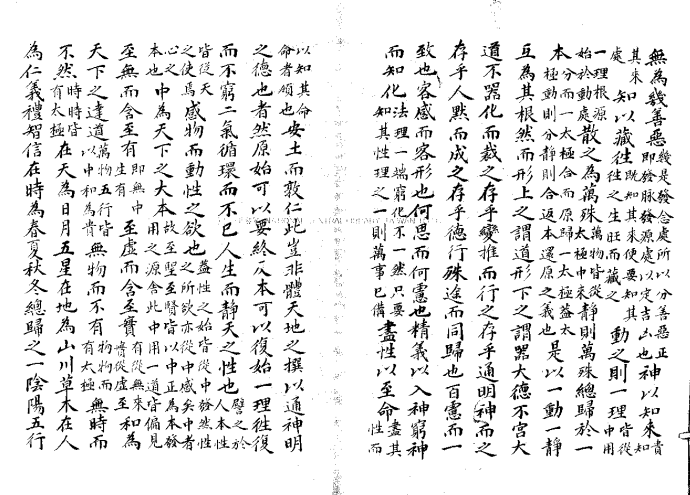 無為幾善惡幾是發念處所以分善惡正即發脉發源處以定吉凶也神以知來貴知
其來處知以藏往既知其來使要知其往之生旺而藏之動之則一理皆從中用
一理根源始於動處散之為萬殊萬物皆從太極中來靜則萬殊總歸於一
本分而一太極合而原歸一太極蓋太極動則分靜則合返本還原之義也是以一動一靜
互為其根然而形上之謂道形下之謂器大德不官大
道不器化而裁之存乎變推而行之存乎通明神而之
存乎人默而成之存乎德行殊途而同歸也百慮而一
致也容感而容形也何思而何慮也精義以入神窮神
而知化法理一端窮化不一然只要知其性理之一則萬事已備盡性以至命盡其性而
以知其命命者領也安土而敦仁此豈非體天地之撰以通神明
之德也者然原始可以要終反本可以復始一理往復
而不窮二氣循環而不已人生而靜天之性也譬之於人本性
皆從天之使焉感物而動性之欲也蓋性之始皆從中發然性之所欲亦從中感矣中者
心之本也中為天下之大本故至聖至賢皆以中正為本發用之源舍此中用一道皆偏見
至無而含至有即無中生有至虛而含至實有從無來實從虛至和為
天下之達道萬物五行皆以中和為貴無物而不有物物而有太極無時而
不然時時皆有太極在天為日月五星在地為山川草木在人
為仁義禮智信在時為春夏秋冬總歸之一陰陽五行